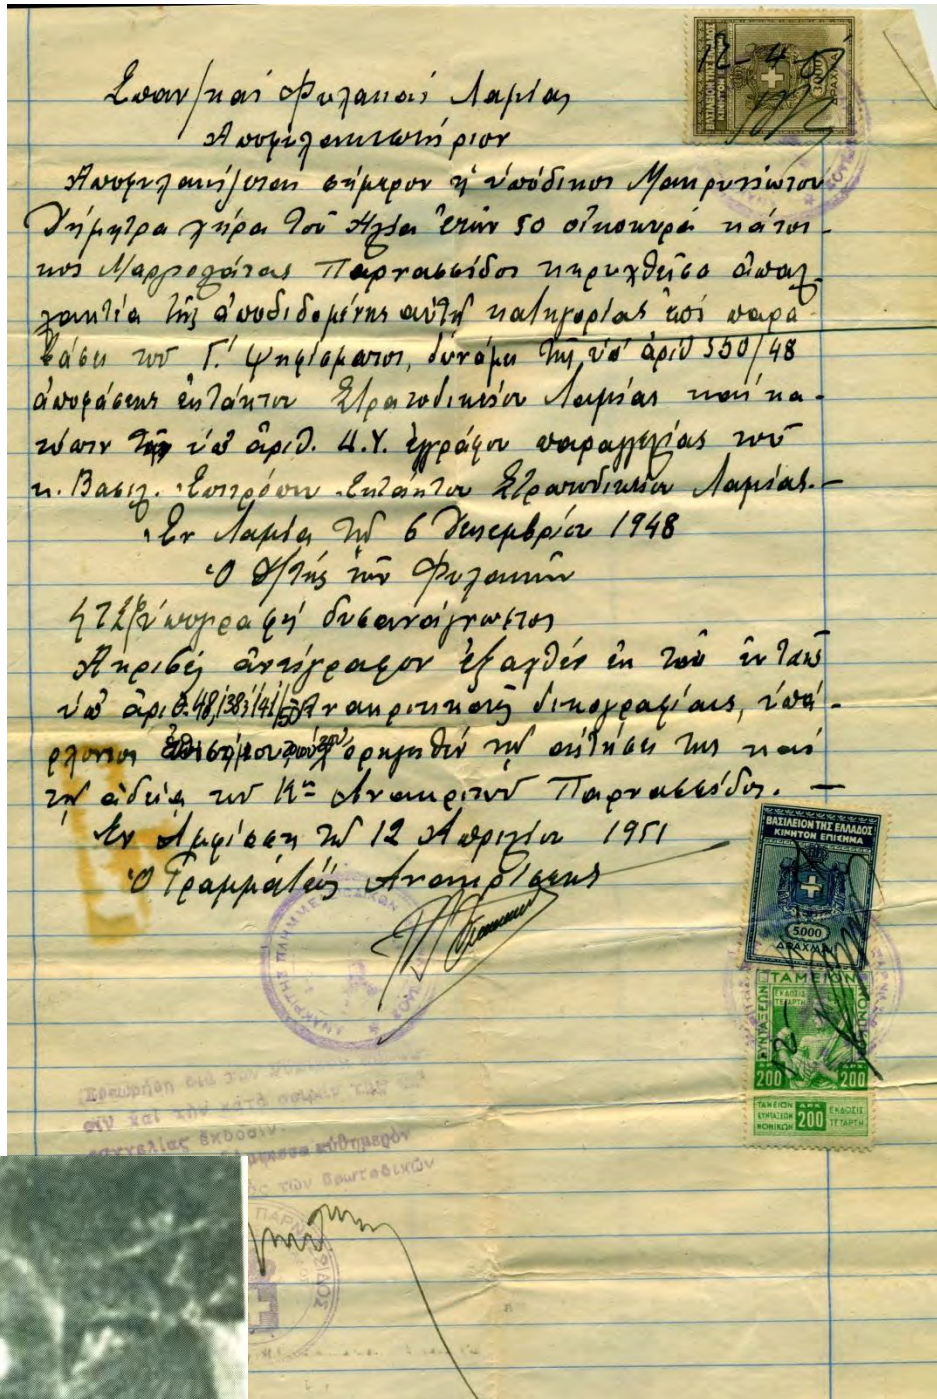 12-4-51
Επαν/καί Φυλακαί Λαμίας
Αποφυλακιστήριον
Αποφυλακίζεται σήμερον ἡ ὑπόδικος Μακρυγιώτου
Δήμητρα χήρα τοῦ Ηλία ἐτῶν 50 οἰκοκυρά κάτοι-
κος Μαριολάτας Παρνασσίδος κηρυχθεῖσα ἀπαλ-
λακτέα τῆς ἀποδιδομένης αὐτῇ κατηγορίας ἐπί παρα
βάσει τοῦ Γ΄. ψηφίσματος, δυνάμει τῆς ὑπ' ἀριθ 550/48
ἀποφάσεως ἐκτάκτου Στρατοδικείου Λαμίας καί κα-
τόπιν τῆς ὑπ' ἀριθ. Δ.Υ. ἐγγράφου παραγγελίας τοῦ
κ. Βασιλ. Επιτρόπου Εκτάκτου Στρατοδικείου Λαμίας.-
Εν Λαμία τῇ 6 Δεκεμβρίου 1948
Ὁ Δ/τής τῶν Φυλακῶν
ὑπογραφή δυσανάγνωστος
Ακριβές ἀντίγραφον ἐξαχθέν ἐκ τοῦ ἐν ταῖς
ὑπ' ἀριθ. 48,138,141/50 ἀνακριτικαῖς δικογραφίαις, ὑπάρ-
χοντος χορηγηθέν τῇ αἰτήσει της καί
τῇ ἀδεία τοῦ Κου Ανακριτοῦ Παρνασσίδος. -
Εν Αμφίσση τῇ 12 Απριλίου 1951
Ὁ Γραμματεύς Ανακρίσεως
ΒΑΣΙΛΕΙΟΝ ΤΗΣ ΕΛΛΑΔΟΣ
ΚΙΝΗΤΟΝ ΕΠΙΣΗΜΑ
5000
ΔΡΑΧΜΑΙ
ΤΑΜΕΙΟΝ
ΣΥΝΤΑΞΕΩΝ
ΕΚΔΟΣΙΣ
ΤΕΤΑΡΤΗ
ΝΟΜΙΚΩΝ
200 200
ΤΑΜΕΙΟΝ ΣΥΝΤΑΞΕΩΝ ΝΟΜΙΚΩΝ
ΔΡΧ 200
ΕΚΔΟΣΙΣ ΤΕΤΑΡΤΗ